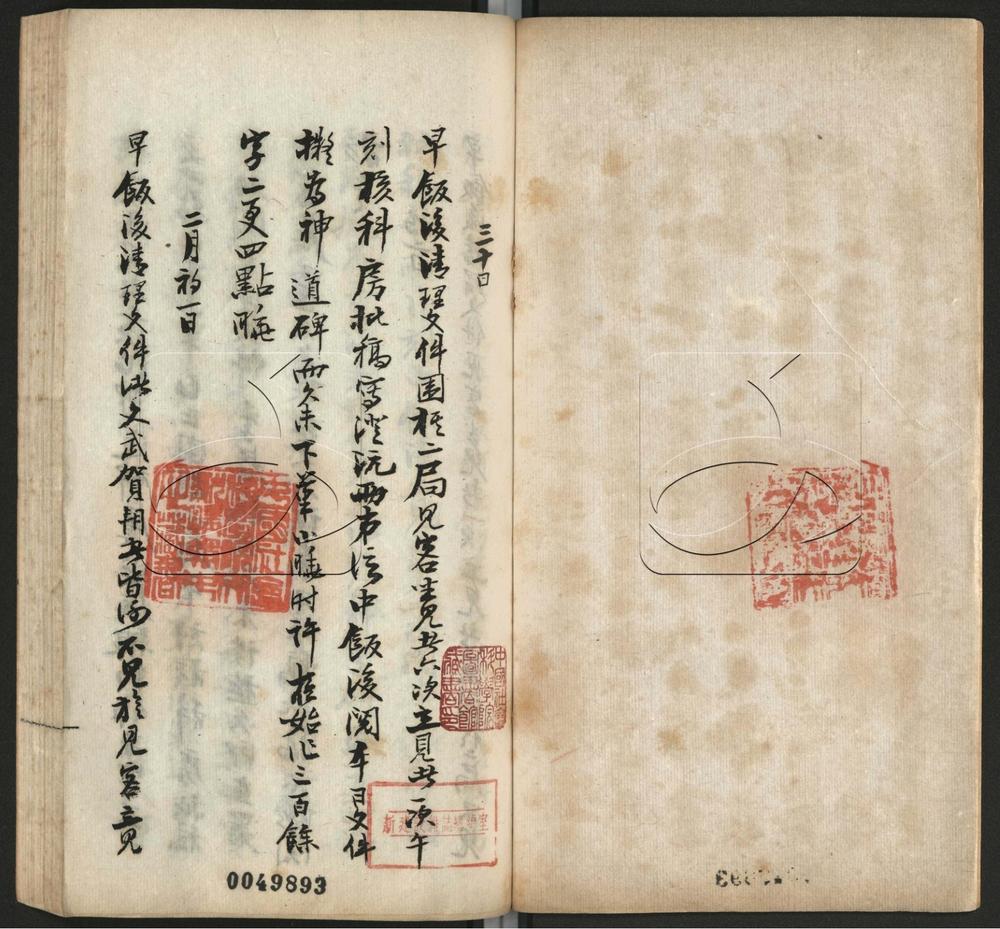 三十日
早飯後清理文件圍棋二局見客坐見者六次立見者一次午
刻核科房批稿寫澄沅兩弟信中飯後閱本日文件
擬為神道碑而久未下筆小睡時許
至始作三百餘
字二更四點睡
二月初一日
早飯後清理文件
文武賀朔者皆
不見於見客立見
0049893